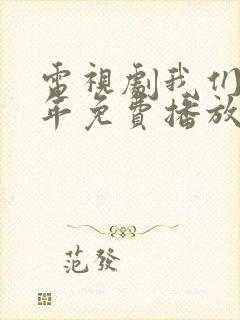 電視劇我们
年免費播放
范發